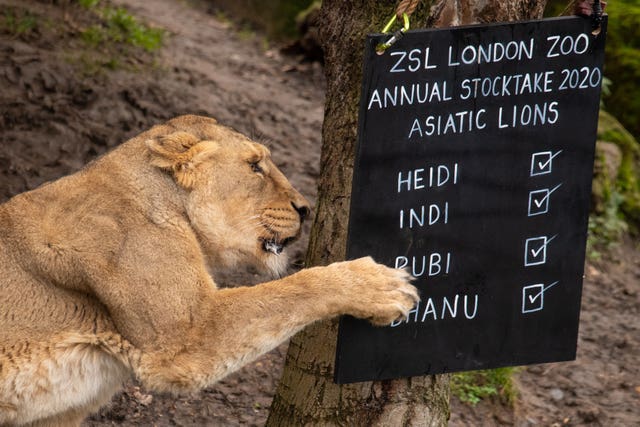 ZSL LONDON ZOO
ANNUAL STOCKTAKE 2020
ASIATIC LIONS
HEIDI
INDI
RUBI
BHANU